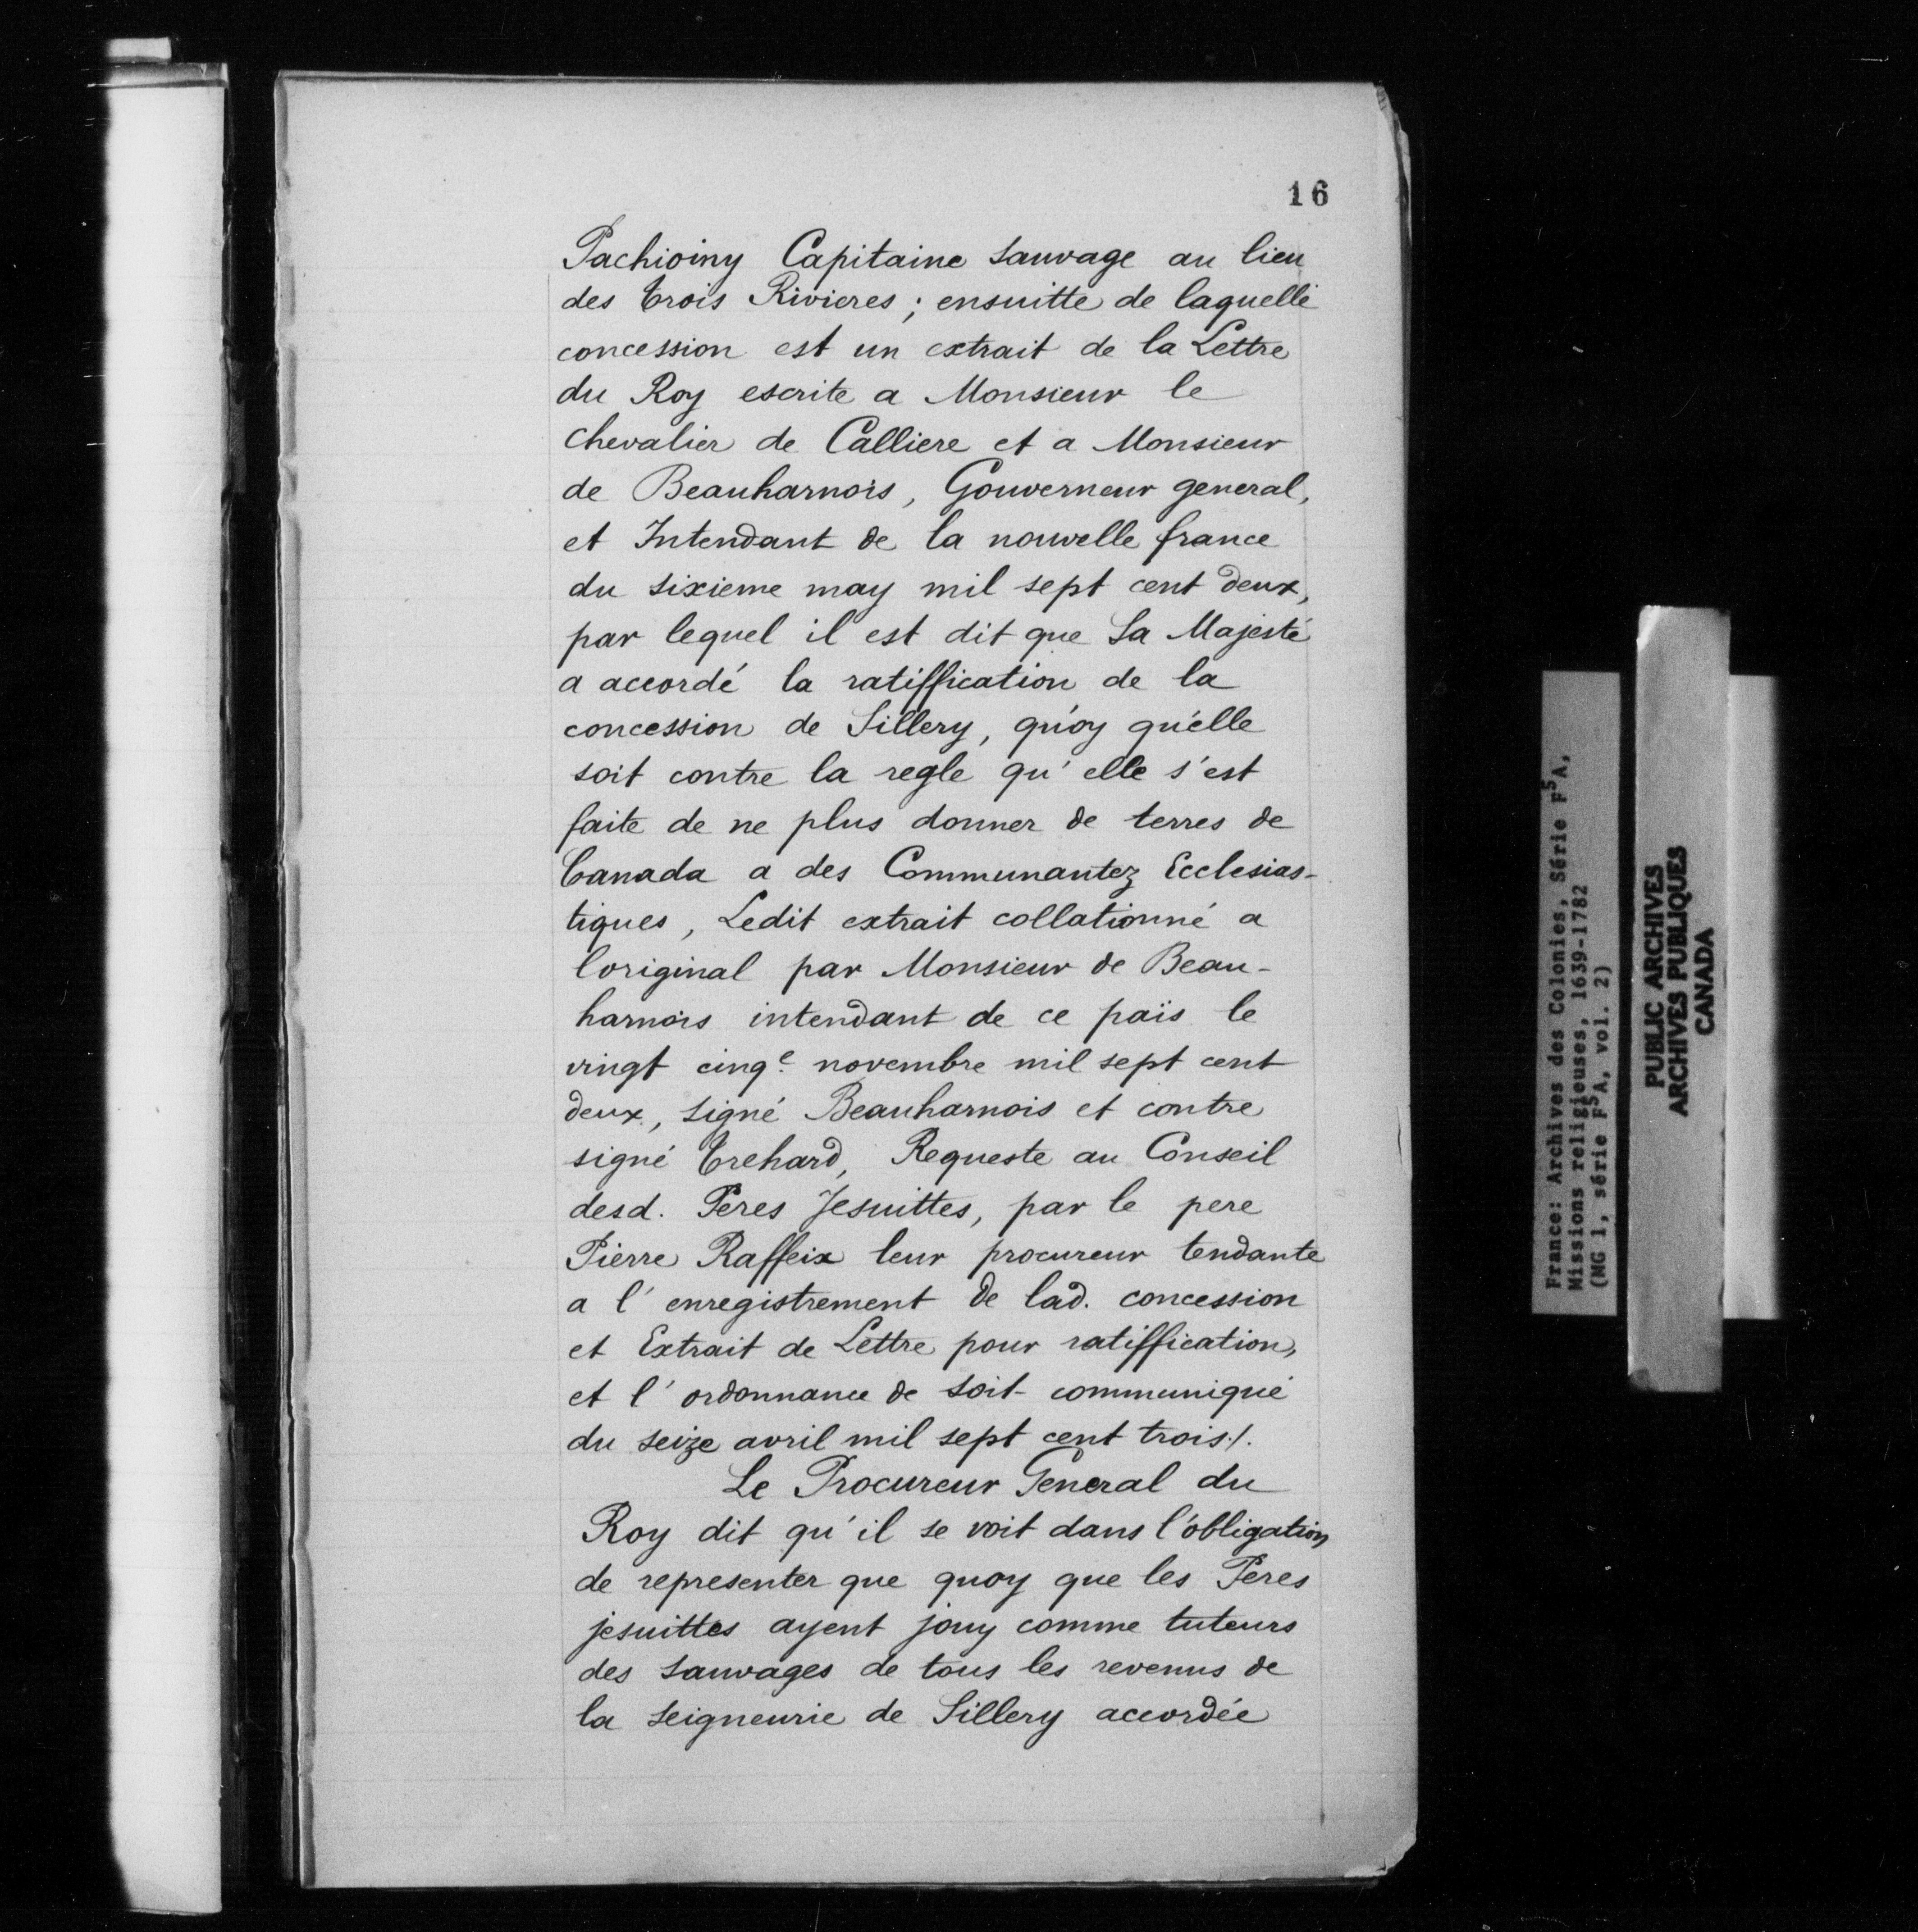 16
Pachioiny Capitaine sauvage au lieu
des trois Rivieres ; ensuitte de laquelle
concession est un extrait de la Lettre
du Roy escrite a Monsieur le
chevalier de Calliere et a Monsieur
de Beauharnois, Gouverneur general,
et Intendant de la nouvelle france
du sixieme may mil sept cent deux,
par lequel il est dit que Sa Majesté
a accordé la ratiffication de la
concession de Sillery, qu'oy qu'elle
soit contre la regle qu' elle s'est
faite de ne plus donner de terres de
Canada a des Communautez Ecclesias-
tiques, Ledit extrait collationné a
loriginal par Monsieur de Beau-
harnois intendant de ce païs le
vingt cinq.e novembre mil sept cent
deux, signé Beauharnois et contre
signé Trehard, Requeste au Conseil
desd. Peres Jesuittes, par le pere
Pierre Raffeix leur procureur tendante
a l' enregistrement de lad. concession
et Extrait de Lettre pour ratiffication,
et l' ordonnance de soit-communiqué
du seize avril mil sept cent trois./.
Le Procureur General du
Roy dit qu' il se voit dans l'obligation
de representer que quoy que les Peres
jesuittes ayent jouy comme tuteurs
des sauvages de tous les revenus de
la seigneurie de Sillery accordée
France: Archives des Colonies, Série F5A,
Missions religieuses, 1639-1782
(MG 1, série F5A, vol. 2)
PUBLIC ARCHIVES
ARCHIVES PUBLIQUES
CANADA